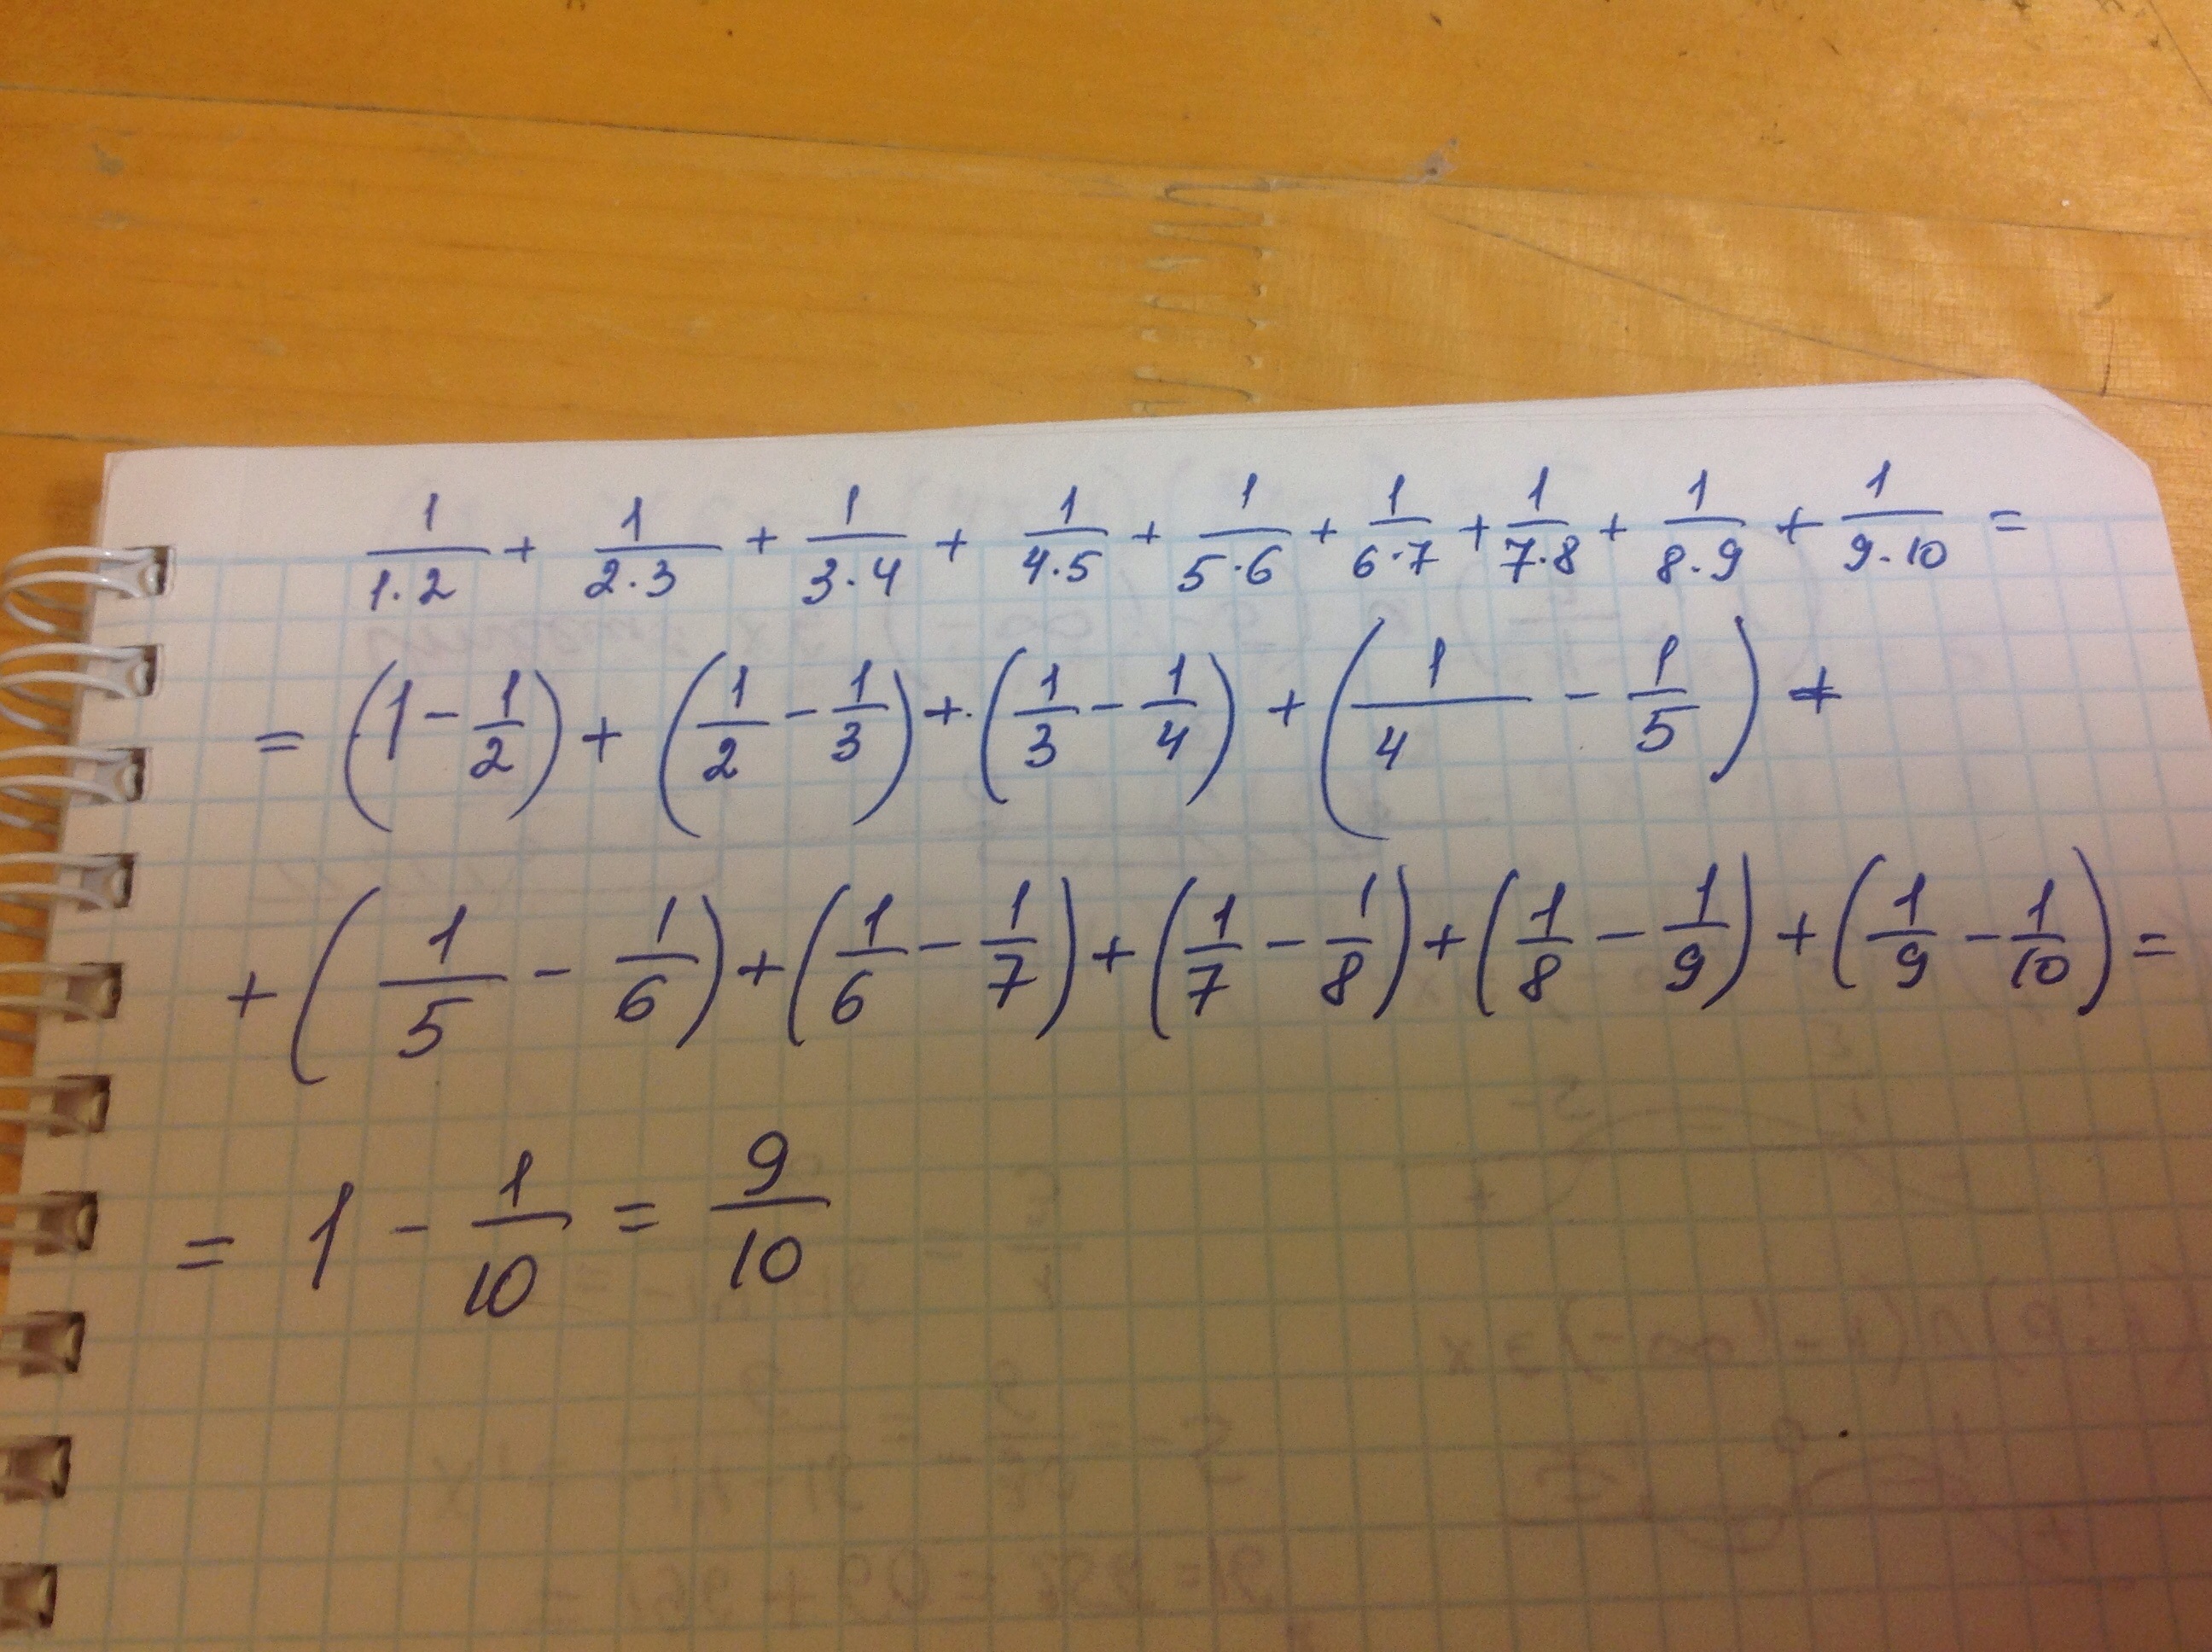 1/(1·2) + 1/(2·3) + 1/(3·4) + 1/(4·5) + 1/(5·6) + 1/(6·7) + 1/(7·8) + 1/(8·9) + 1/(9·10) =
= (1 - 1/2) + (1/2 - 1/3) + (1/3 - 1/4) + (1/4 - 1/5) +
+ (1/5 - 1/6) + (1/6 - 1/7) + (1/7 - 1/8) + (1/8 - 1/9) + (1/9 - 1/10) =
= 1 - 1/10 = 9/10